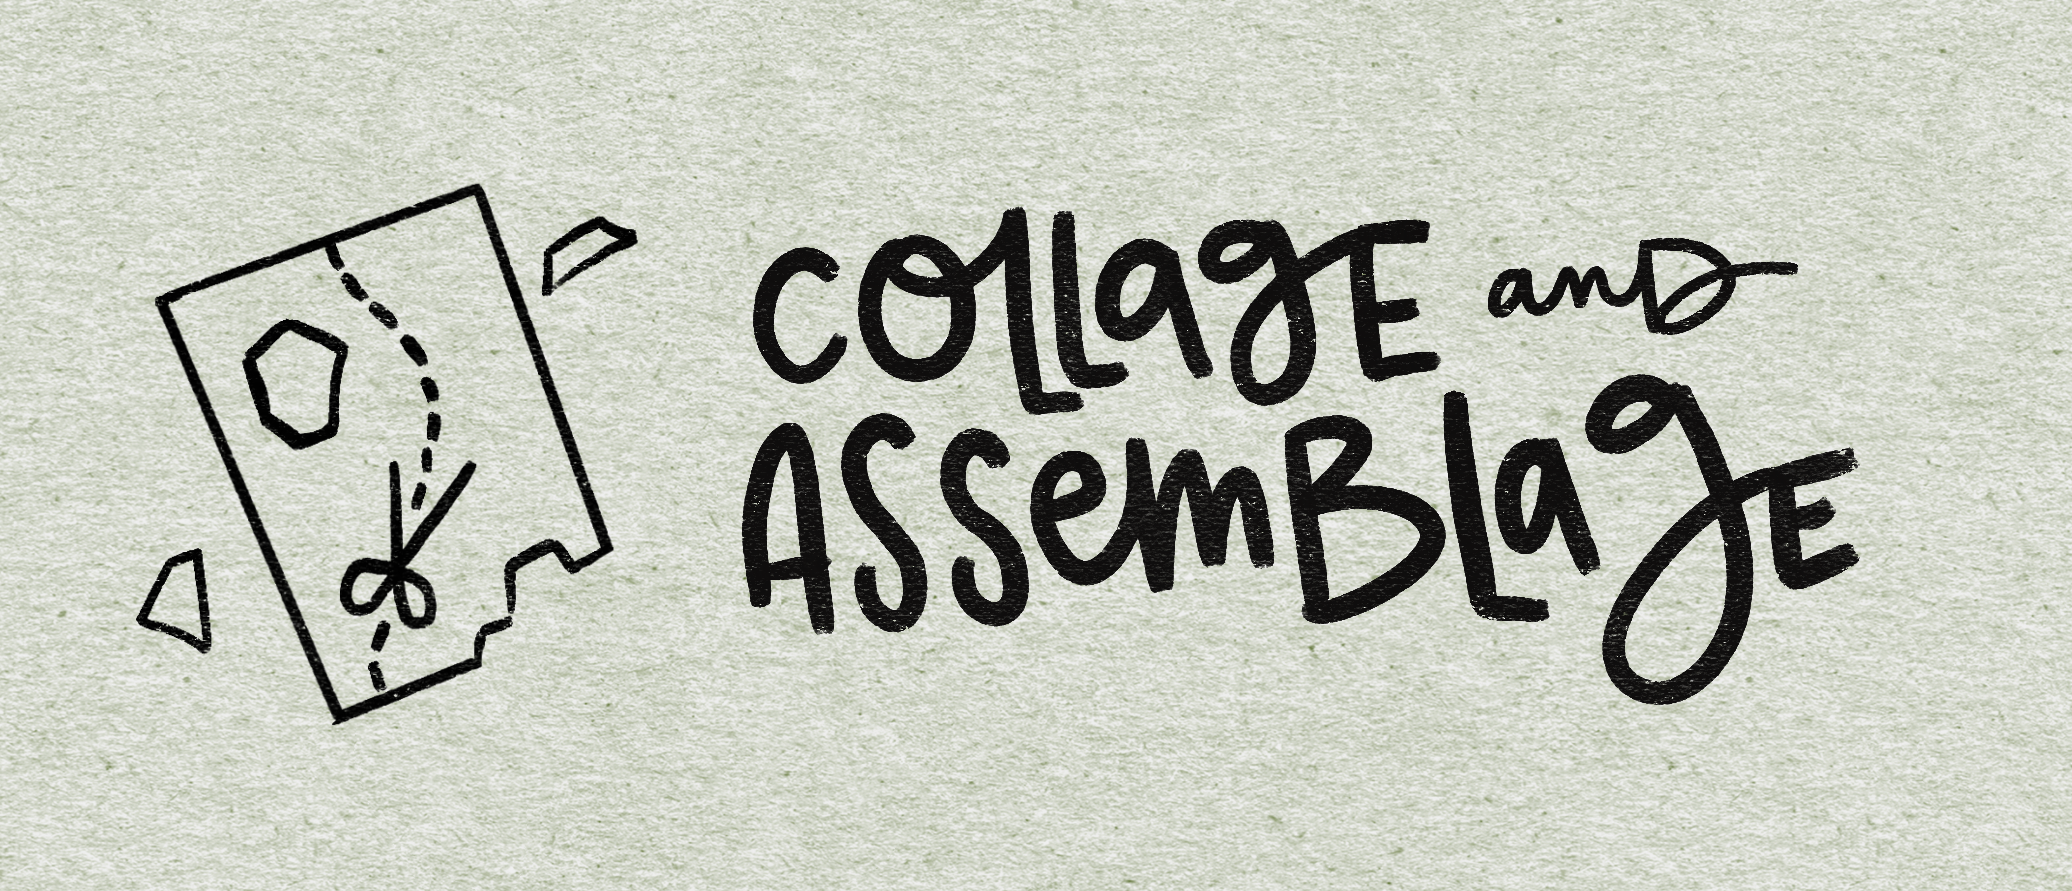 Collage and
Assemblage